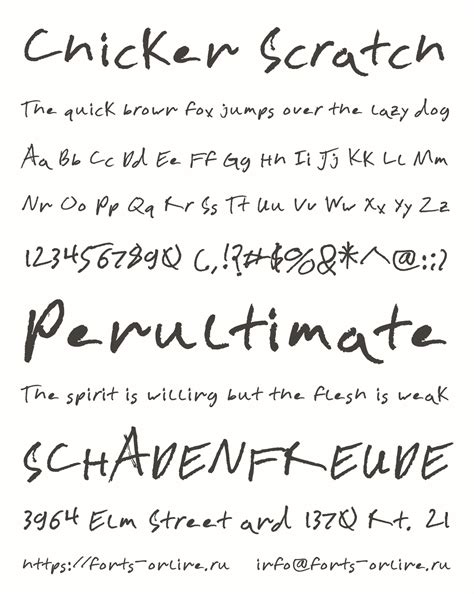 Chicken Scratch
The quick brown fox jumps over the lazy dog
Aa Bb Cc Dd Ee Ff Gg Hh Ii Jj Kk Ll Mm
Nn Oo Pp Qq Rr Ss Tt Uu Vv Ww Xx Yy Zz
1234567890 (,!?#$%&*^@:;)
Penultimate
The spirit is willing but the flesh is weak
SCHADENFREUDE
3964 Elm Street and 1370 Rt. 21
https://fonts-online.ru info@fonts-online.ru